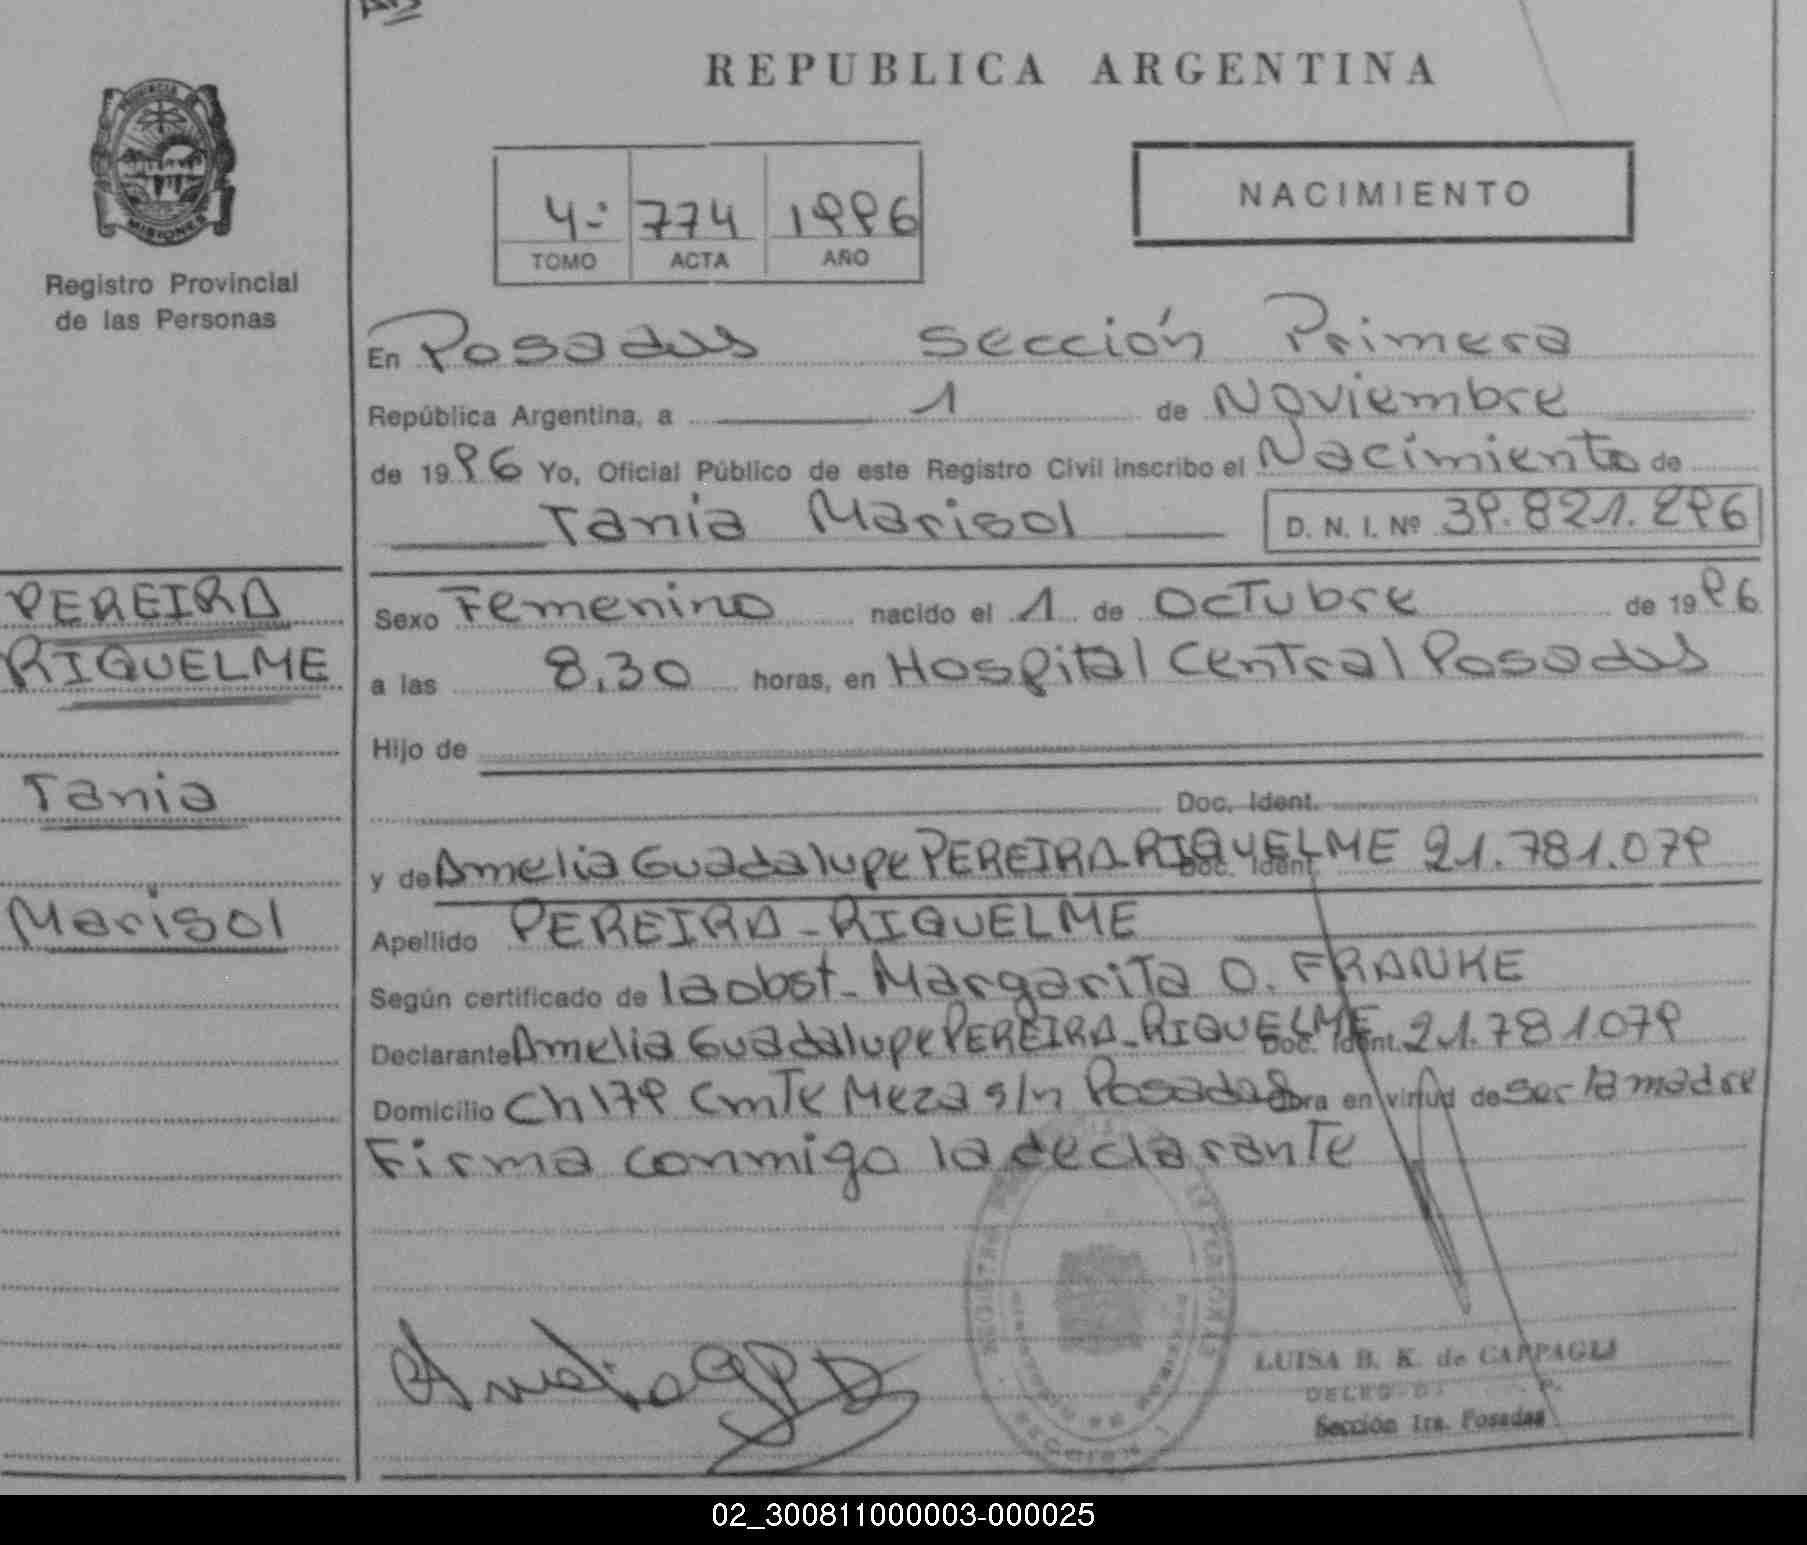 REPUBLICA ARGENTINA
PROVINCIA DE
MISIONES
Registro Provincial
de las Personas
4-: 774 1996
TOMO ACTA AÑO
NACIMIENTO
En Posadas Sección Primera
República Argentina, a 1 de Noviembre
de 1996 Yo, Oficial Público de este Registro Civil inscribo el Nacimiento de
Tania Marisol D. N. I. Nº 39.821.296
PEREIRA
RIQUELME
Tania
Marisol
Sexo Femenino nacido el 1 de Octubre de 1996
a las 8,30 horas, en Hospital Central Posadas
Hijo de
Doc. Ident.
y de Amelia Guadalupe PEREIRA RIQUELME Doc. Ident. 21.781.079
Apellido PEREIRA - RIQUELME
Según certificado de la obst. Margarita O. FRANKE
Declarante Amelia Guadalupe PEREIRA - RIQUELME Doc. Ident. 21.781.079
Domicilio Ch 179 Cmte Meza s/n Posadas Obra en virtud de ser la madre
Firma conmigo la declarante
LUISA B. K. de CAPPAGLI
Sección 1ra. Posadas
02_300811000003-000025